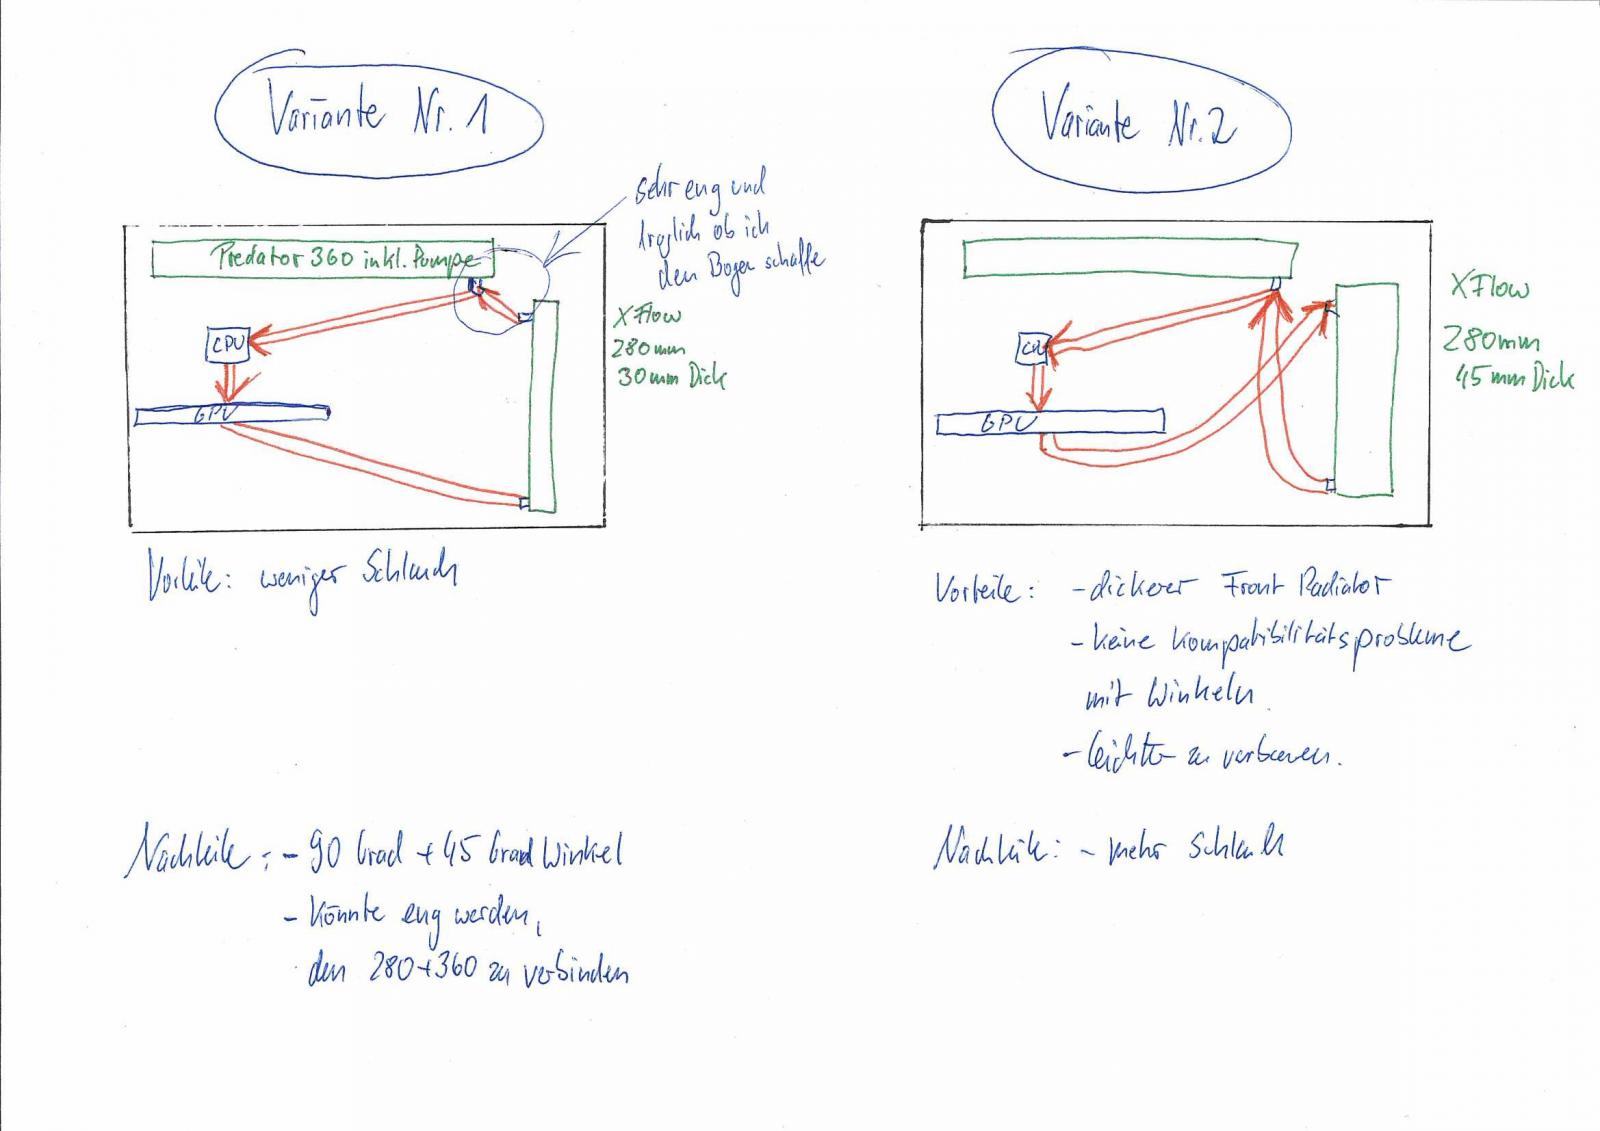 Variante Nr. 1
sehr eng und
fraglich ob ich
den Bogen schaffe
Predator 360 inkl. Pumpe
CPU
GPU
XFlow
280mm
30mm Dick
Vorteile: weniger Schlauch
Nachteile: - 90 Grad + 45 Grad Winkel
- könnte eng werden,
den 280+360 zu verbinden
Variante Nr. 2
CPU
GPU
XFlow
280mm
45mm Dick
Vorteile: - dickerer Front Radiator
- keine Kompatibilitätsprobleme
mit Winkeln
- leichter zu verbauen.
Nachteile: - mehr Schlauch